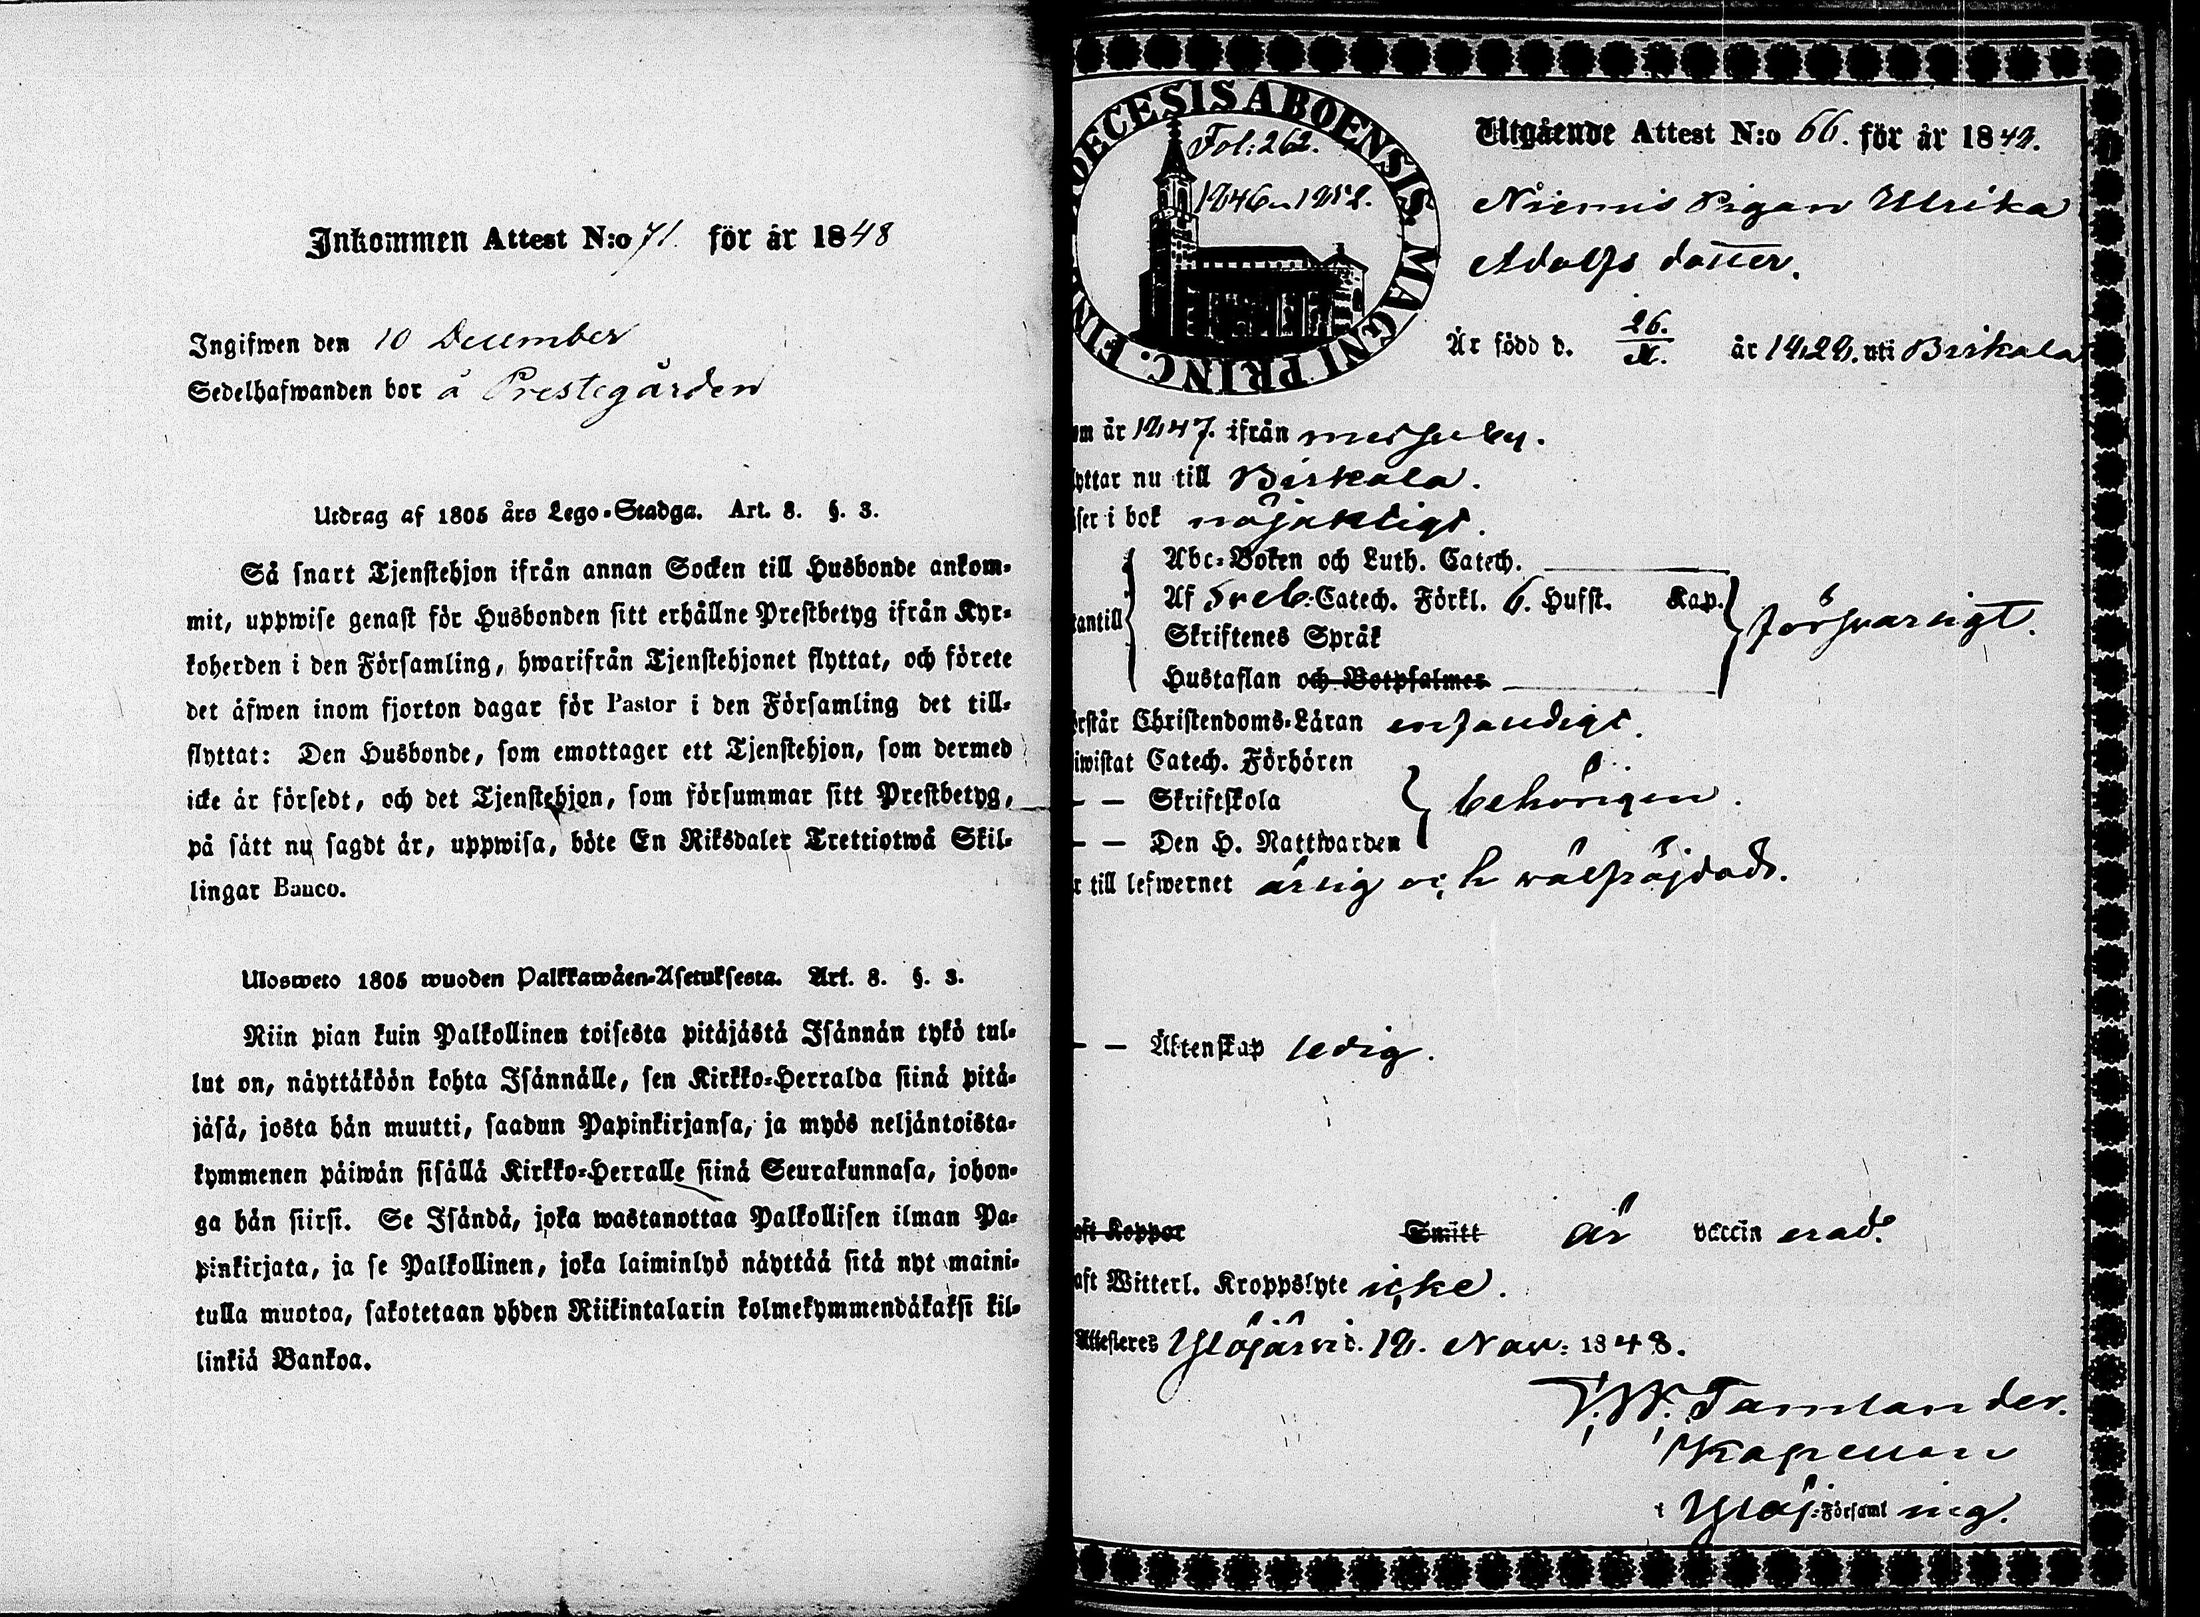 Inkommen Attest N:o 71. för år 1848
Ingifwen den 10 December
Sedelhafwanden bor å Prestegården
Utdrag af 1805 års Lego-Stadga. Art. 8. §. 3.
Så snart Tjenstehjon ifrån annan Socken till Husbonde ankom-
mit, uppwise genast för Husbonden sitt erhållne Prestbetyg ifrån Kyr-
koherden i den Församling, hwarifrån Tjenstehjonet flyttat, och förete
det äfwen inom fjorton dagar för Pastor i den Församling det till-
flyttat: Den Husbonde, som emottager ett Tjenstehjon, som dermed
icke är försedt, och det Tjenstehjon, som försummar sitt Prestbetyg,
på sätt nu sagdt är, uppwisa, böte En Riksdaler Trettiotwå Skil-
lingar Banco.
Ulosweto 1805 wuoden Palkkawäen-Asetuksesta. Art. 8. §. 3.
Niin pian kuin Palkollinen toisesta pitäjästä Isännän tykö tul-
lut on, näyttäköön kohta Isännälle, sen Kirkko-Herralda siinä pitä-
jäsä, josta hän muutti, saadun Papinkirjansa, ja myös neljäntoista-
kymmenen päiwän sisällä Kirkko-Herralle siinä Seurakunnasa, johon-
ga hän siirsi. Se Isändä, joka wastanottaa Palkollisen ilman Pa-
pinkirjata, ja se Palkollinen, joka laiminlyö näyttää sitä nyt maini-
tulla muotoa, sakotetaan yhden Riikintalarin kolmekymmendäkaksi kil-
linkiä Bankoa.
ECESIS ABOENSIS. MAGNI PRINC. FIN
Fol: 262.
1846-1852.
Utgående Attest N:o 66. för år 1848.
Niemis Pigan Ulrika
Adolfs dotter.
Är född d. 26. år 1829. uti Birkala
om år 1847. ifrån messuby.
lyttar nu till Birkala.
äser i bok nöjaktigt.
Abc-Boken och Luth. Catech.
Af Sveb: Catech. Förkl. 6. Hufst. Kap.
antill
Skriftenes Språk
försvarligt.
Hustaflan och Botpsalmer
rstår Christendoms-Läran enfaldigt.
iwistat Catech. Förhören
— — Skriftskola
behörigen.
— — Den H. Nattwarden
r till lefwernet ärlig och wälfräjdad.
— — Äktenskap ledig.
aft Koppor Smitt är vaccin erad.
aft Witterl. Kroppslyte icke.
Attesteres Ylöjärvi d. 18. Nov: 1848.
Tamlander.
Kapellan
i Ylöj: Församl ing.